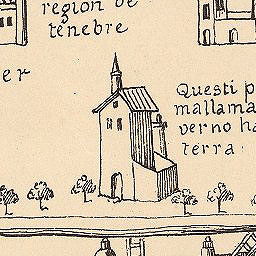 region de
tenebre
er
Questi p
mallama
verno ha
terra.